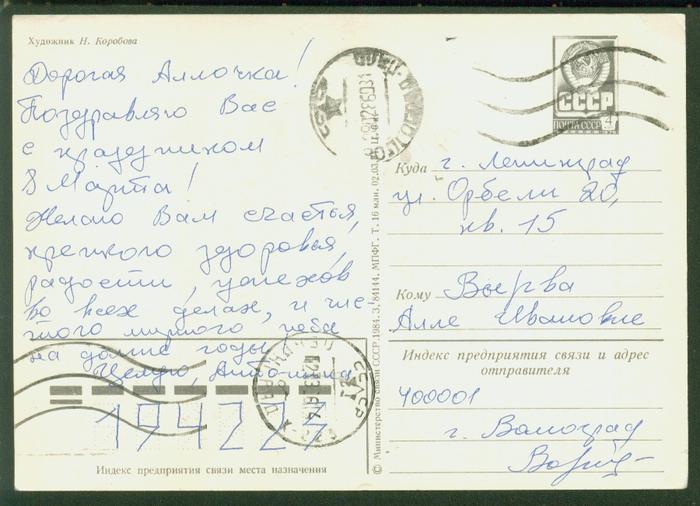 Художник Н. Коробова
Дорогая Аллочка!
Поздравляю Вас
с праздником
8 Марта!
Желаю Вам счастья,
крепкого здоровья,
радости, успехов
во всех делах, и чис-
того мирного неба
на долгие годы.
Целую, Антонина
194223
Индекс предприятия связи места назначения
© Министерство связи СССР. 1984. З. 84144. МПФГ. Т. 16 млн. 02.03.
СССР
ПОЧТА СССР
4
Куда г. Ленинград
ул. Орбели 20,
кв. 15
Кому Вырва
Алле Ивановне
Индекс предприятия связи и адрес
отправителя
400001
г. Волгоград
СССР
СССР